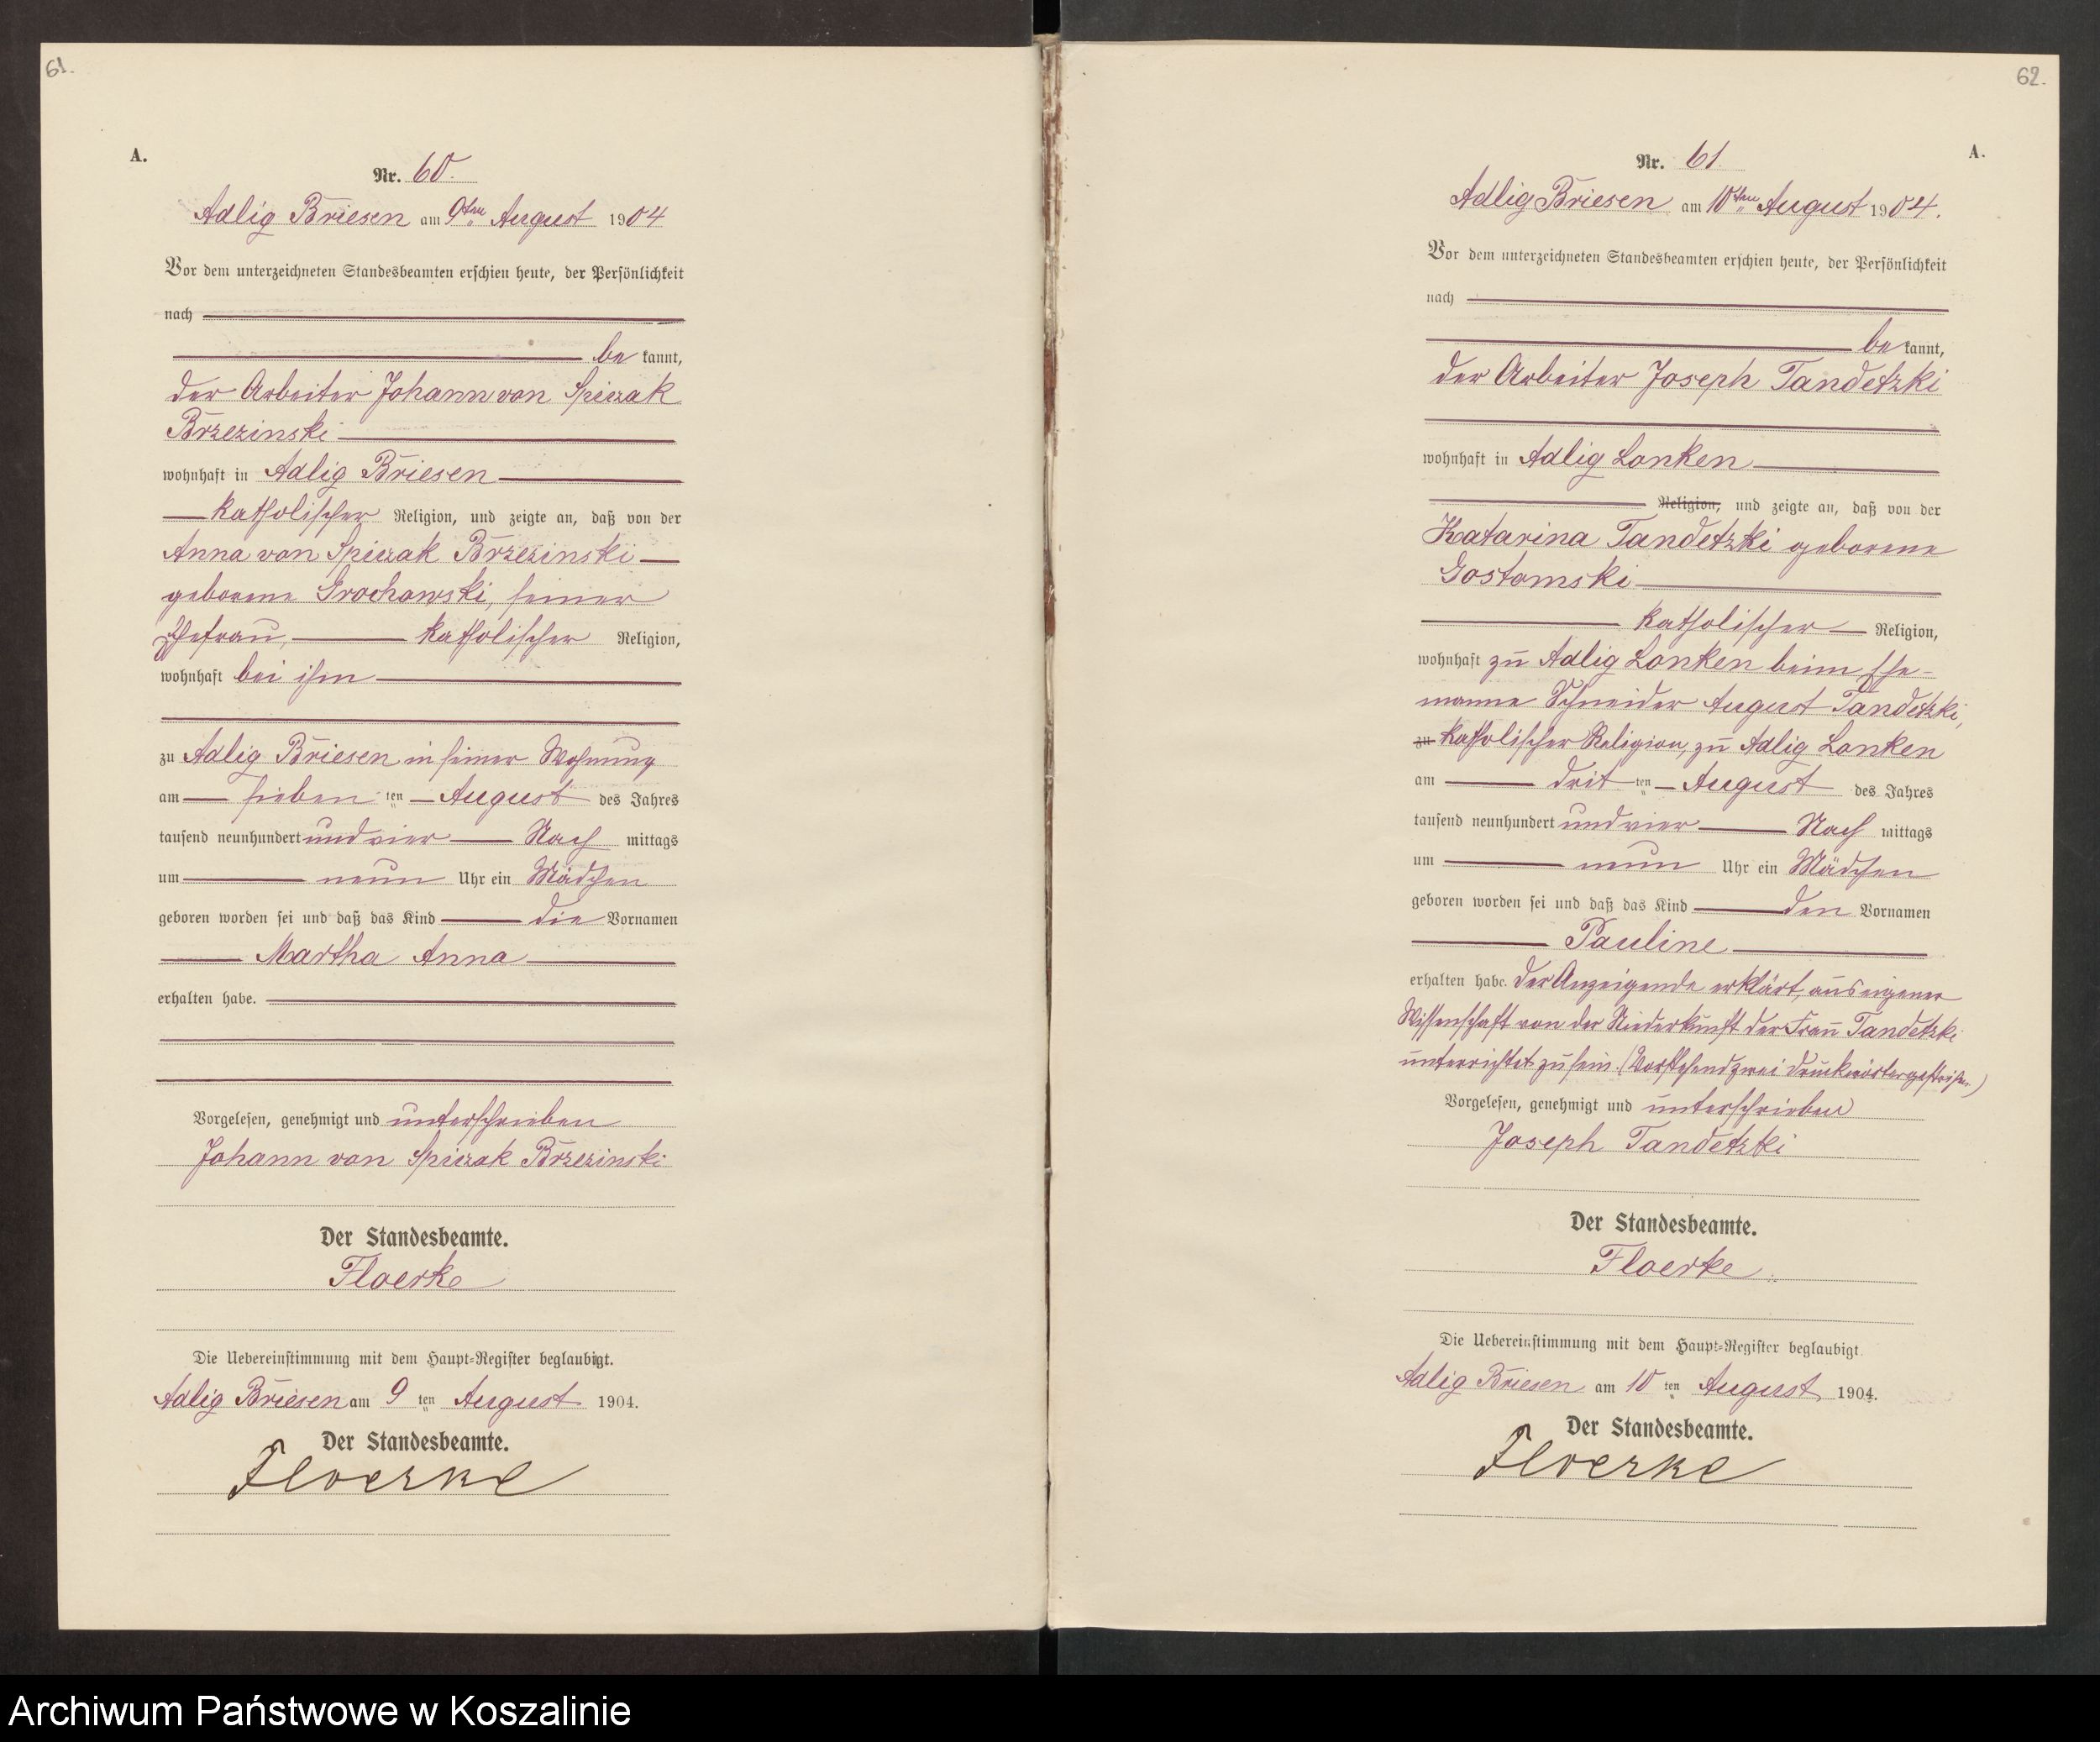 61.
A.
Nr. 60.
Adlig Briesen am 9ten August 1904
Vor dem unterzeichneten Standesbeamten erschien heute, der Persönlichkeit
nach
be kannt,
der Arbeiter Johann von Spiczak
Brzezinski
wohnhaft in Adlig Briesen
katholischer Religion, und zeigte an, daß von der
Anna von Spiczak Brzezinski
geborene Grochowski, seiner
Ehefrau, katholischer Religion,
wohnhaft bei ihm
zu Adlig Briesen in seiner Wohnung
am sieben ten August des Jahres
tausend neunhundert und vier Nach mittags
um neun Uhr ein Mädchen
geboren worden sei und daß das Kind die Vornamen
Martha Anna
erhalten habe.
Vorgelesen, genehmigt und unterschrieben
Johann von Spiczak Brzezinski
Der Standesbeamte.
Floerke
Die Uebereinstimmung mit dem Haupt-Register beglaubigt.
Adlig Briesen am 9 ten August 1904.
Der Standesbeamte.
Floerke
62.
A.
Nr. 61.
Adlig Briesen am 10ten August 1904.
Vor dem unterzeichneten Standesbeamten erschien heute, der Persönlichkeit
nach
be kannt,
der Arbeiter Joseph Tandetzki
wohnhaft in Adlig Lonken
Religion, und zeigte an, daß von der
Katarina Tandetzki geborene
Gostomski
katholischer Religion,
wohnhaft zu Adlig Lonken beim Ehe-
manne Schneider August Tandetzki,
zu katholischer Religion, zu Adlig Lonken
am drit ten August des Jahres
tausend neunhundert und vier Nach mittags
um neun Uhr ein Mädchen
geboren worden sei und daß das Kind den Vornamen
Pauline
erhalten habe. Der Anzeigende erklärt, aus eigener
Wissenschaft von der Niederkunft der Frau Tandetzki
unterrichtet zu sein. (Vorstehend zwei Druckwörter gestrichen.)
Vorgelesen, genehmigt und unterschrieben
Joseph Tandetzki
Der Standesbeamte.
Floerke
Die Uebereinstimmung mit dem Haupt-Register beglaubigt.
Adlig Briesen am 10 ten August 1904.
Der Standesbeamte.
Floerke
Archiwum Państwowe w Koszalinie